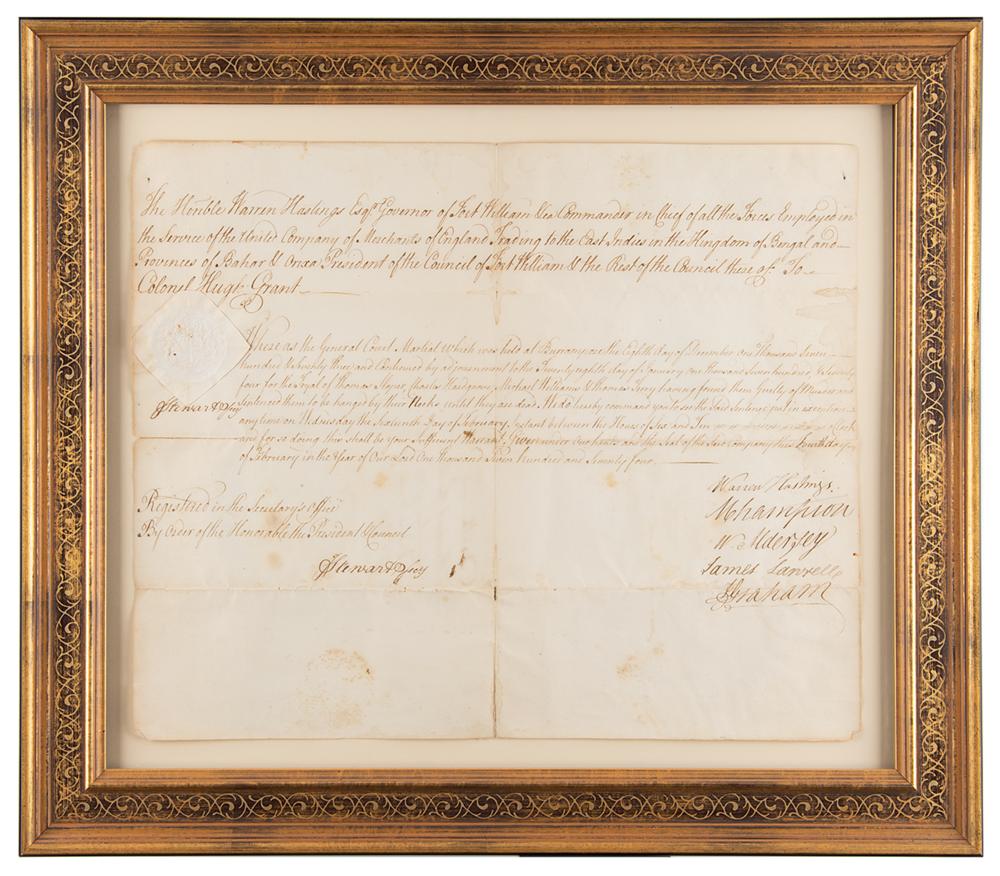 The Honble Warren Hastings Esqr. Governor of Fort William &ca Commander in Chief of all the Forces Employed in
the Service of the United Company of Merchants of England Trading to the East Indies in the Kingdom of Bengal and
Provences of Bahar & Orixa President of the Council of Fort William & the Rest of the Council there of To
Colonel Hugh Grant
Where as the General Court Martial Which was held at Burrampore the Eighth day of December One Thousand Seven
hundred & Seventy three and Continued by adjournment to the Twenty eighth day of January one thousand Seven hundred & Seventy
four for the Tryal of Thomas Charles Hardgrove, Michael Williams & Thomas Terry having found them Guilty of Murder and
Sentenced them to be hanged by their Necks until they are dead We do hereby command you to see the Said Sentence put in execution
any time on Wednesday the Sixteenth Day of February Instant between the Hours of Six and Ten Clock
and for so doing this shall be your Sufficient Warrant Given under our hands and the Seal of the Said Company this Fourth day
of February in the Year of Our Lord One Thousand Seven hundred and Seventy four
JStewart Secy
Registered in the Secretary's Office
By Order of the Honorable the President & Council
JStewart Secy
Warren Hastings
AChampion
W Aldersey
James Lawrell
JGraham